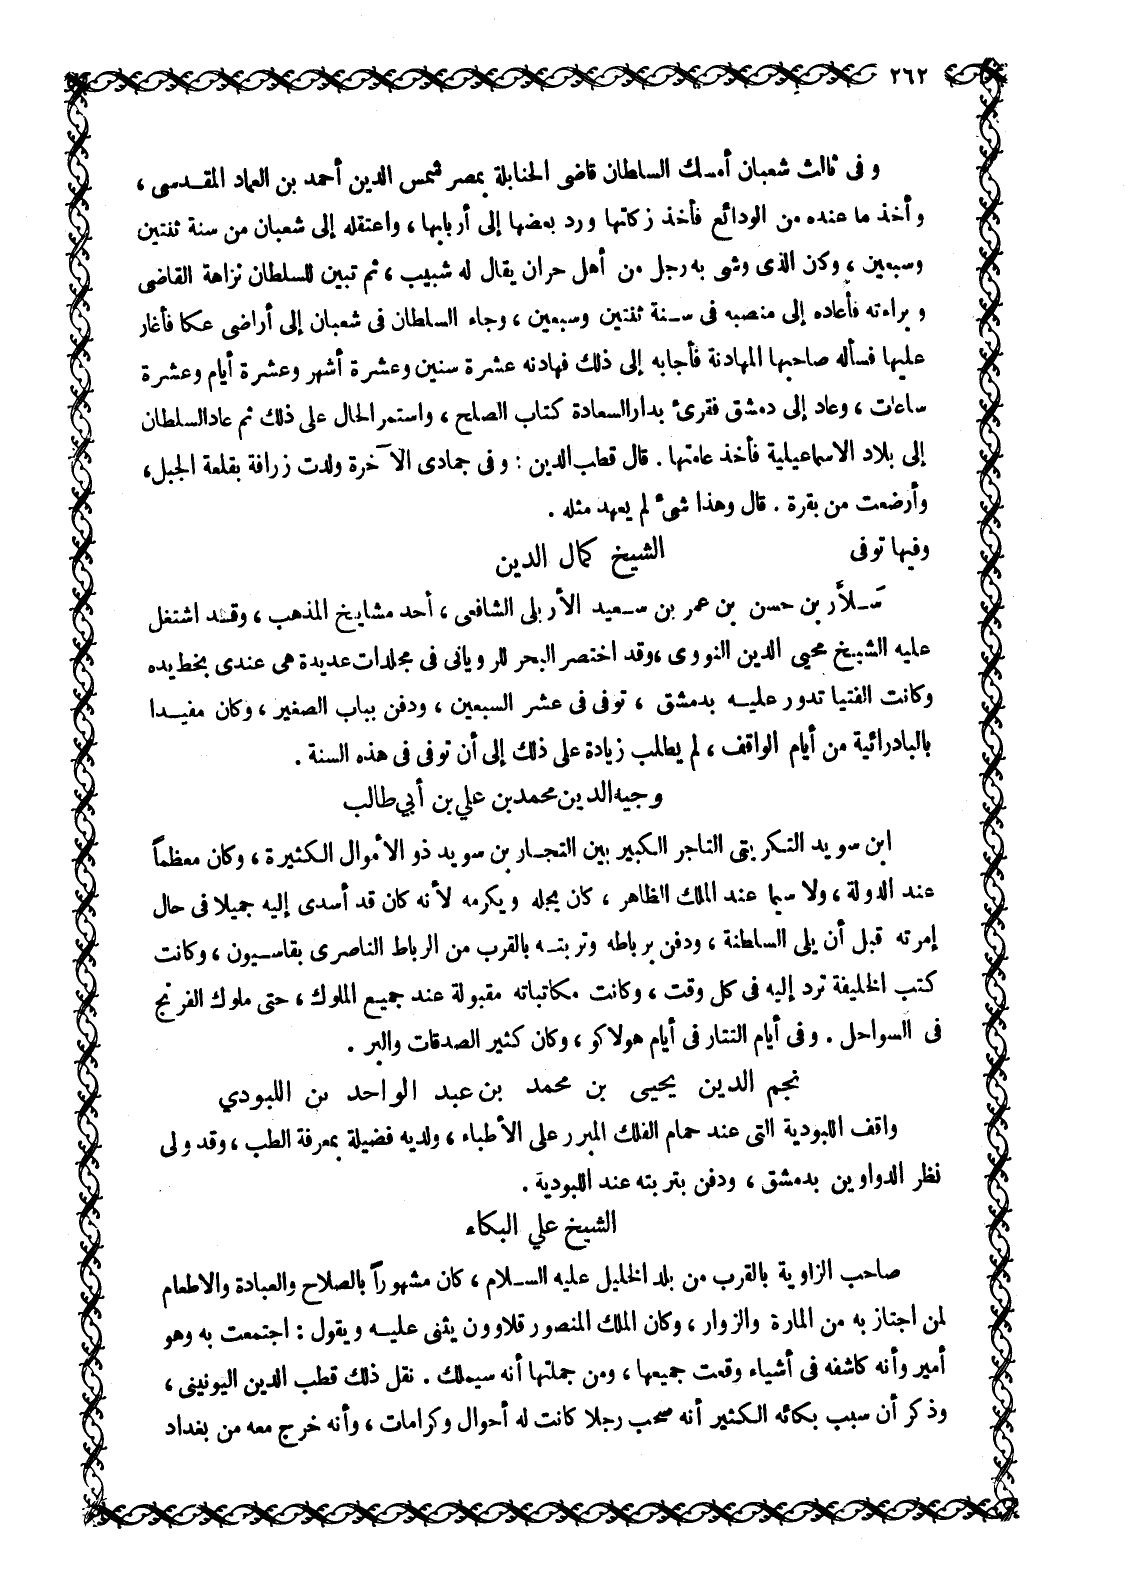 ٢٦٢
وفى ثالث شعبان أمسك السلطان قاضى الحنابلة بمصر شمس الدين أحمد بن العماد المقدسى ،
وأخذ ما عنده من الودائع فأخذ زكاتها ورد بعضها إلى أربابها ، واعتقله إلى شعبان من سنة ثنتين
وسبعين ، وكن الذى وشى به رجل من أهل حران يقال له شبيب ، ثم تبين للسلطان نزاهة القاضى
وبراءته فأعاده إلى منصبه فى سنة ثنتين وسبعين ، وجاء السلطان فى شعبان إلى أراضى عكا فأغار
عليها فسأله صاحبها المهادنة فأجابه إلى ذلك فهادنه عشرة سنين وعشرة أشهر وعشرة أيام وعشرة
ساعات ، وعاد إلى دمشق فقرئ بدار السعادة كتاب الصلح ، واستمر الحال على ذلك ثم عاد السلطان
إلى بلاد الاسماعيلية فأخذ عامتها . قال قطب الدين : وفى جمادى الآخرة ولدت زرافة بقلعة الجبل ،
وأرضعت من بقرة . قال وهذا شئ لم يعهد مثله .
وفيها توفى الشيخ كمال الدين
سَلَّار بن حسن بن عمر بن سعيد الأربلى الشافعى ، أحد مشايخ المذهب ، وقد اشتغل
عليه الشيخ محيى الدين النووى ، وقد اختصر البحر للرويانى فى مجلدات عديدة هى عندى بخط يده
وكانت الفتيا تدور عليه بدمشق ، توفى فى عشر السبعين ، ودفن بباب الصغير ، وكان مفيدا
بالبادرائية من أيام الواقف ، لم يطلب زيادة على ذلك إلى أن توفى فى هذه السنة .
وجيه الدين محمد بن علي بن أبي طالب
ابن سويد التكريتى التاجر الكبير بين التجار بن سويد ذو الأموال الكثيرة ، وكان معظماً
عند الدولة ، ولا سيما عند الملك الظاهر ، كان يجله ويكرمه لأنه كان قد أسدى إليه جميلا فى حال
إمرته قبل أن يلى السلطنة ، ودفن برباطه وتربته بالقرب من الرباط الناصرى بقاسيون ، وكانت
كتب الخليفة ترد إليه فى كل وقت ، وكانت مكاتباته مقبولة عند جميع الملوك ، حتى ملوك الفرنج
فى السواحل . وفى أيام التتار فى أيام هولاكو ، وكان كثير الصدقات والبر .
نجم الدين يحيى بن محمد بن عبد الواحد بن اللبودي
واقف اللبودية التى عند حمام الفلك المبرر على الأطباء ، ولديه فضيلة بمعرفة الطب ، وقد ولى
نظر الدواوين بدمشق ، ودفن بتربته عند اللبودية .
الشيخ علي البكاء
صاحب الزاوية بالقرب من بلد الخليل عليه السلام ، كان مشهوراً بالصلاح والعبادة والاطعام
لمن اجتاز به من المارة والزوار ، وكان الملك المنصور قلاوون يثنى عليه ويقول : اجتمعت به وهو
أمير وأنه كاشفه فى أشياء وقعت جميعها ، ومن جملتها أنه سيملك . نقل ذلك قطب الدين اليونينى ،
وذكر أن سبب بكائه الكثير أنه صحب رجلا كانت له أحوال وكرامات ، وأنه خرج معه من بغداد